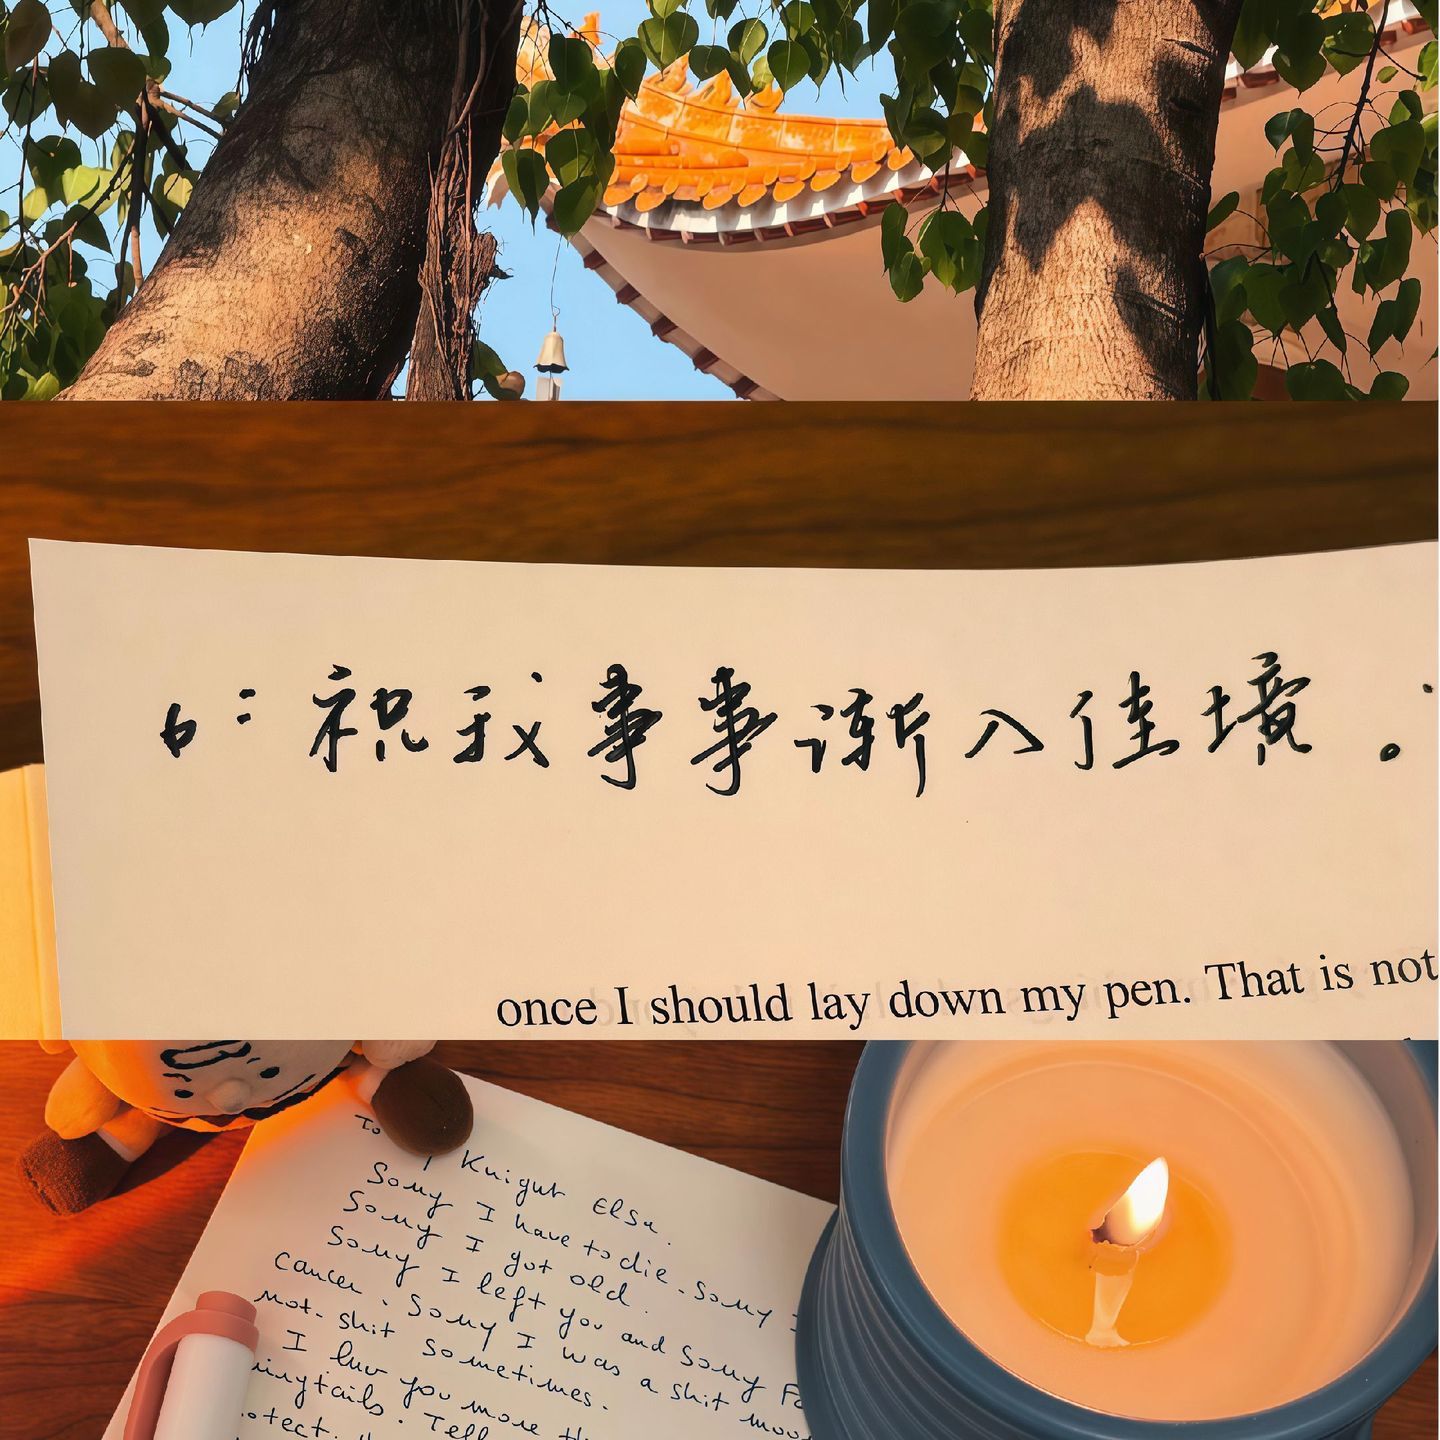 6：祝我事事渐入佳境。
once I should lay down my pen. That is not
To
Knight Elsa.
Sorry I have to die. Sorry I
Sorry I got old.
Sorry I left you and Sorry Fo
cancer. Sorry I was a shit moo
not-shit sometimes.
I luv you more th
tails. Tell
otect.